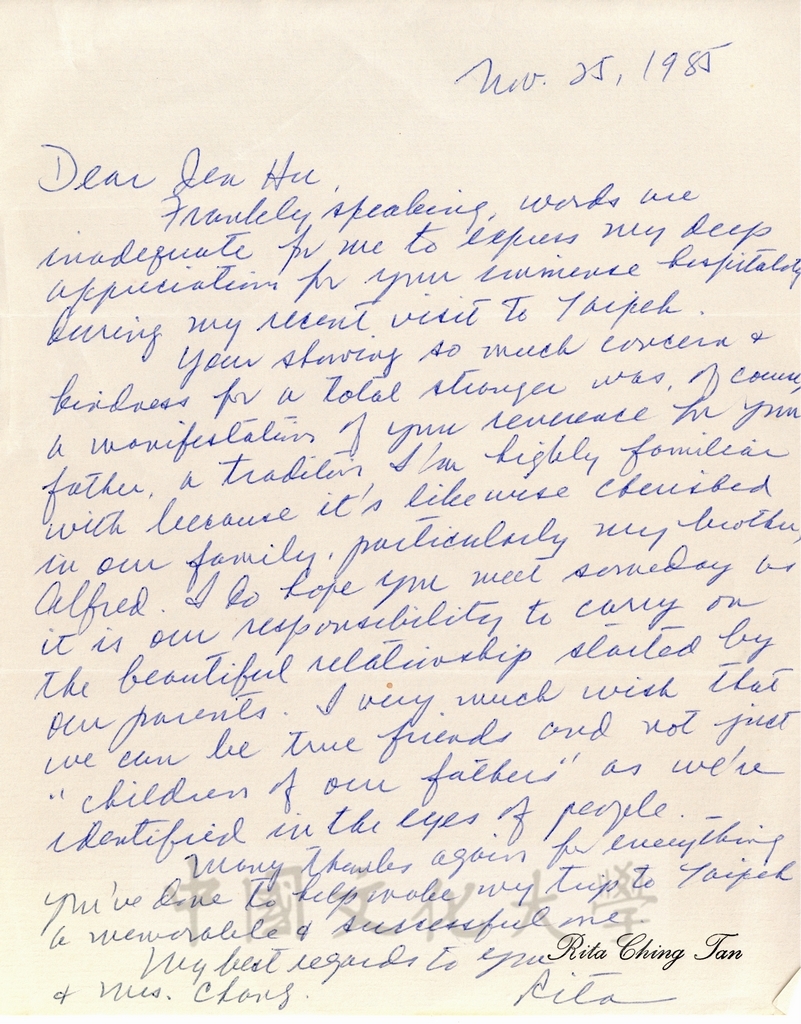 Nov. 25, 1985
Dear Jen Hu,
Frankly speaking, words are
inadequate for me to express my deep
appreciation for your immense hospitality
during my recent visit to Taipeh.
Your showing so much concern &
kindness for a total stranger was, of course,
a manifestation of your reverence for your
father, a tradition I'm highly familiar
with because it's likewise cherished
in our family, particularly my brother,
Alfred. I do hope you meet someday as
it is our responsibility to carry on
the beautiful relationship started by
our parents. I very much wish that
we can be true friends and not just
"children of our fathers" as we're
identified in the eyes of people.
Many thanks again for everything
you've done to help make my trip to Taipeh
a memorable & successful one.
My best regards to you
& Mrs. Chang.
Rita
Rita Ching Tan
中國文化大學